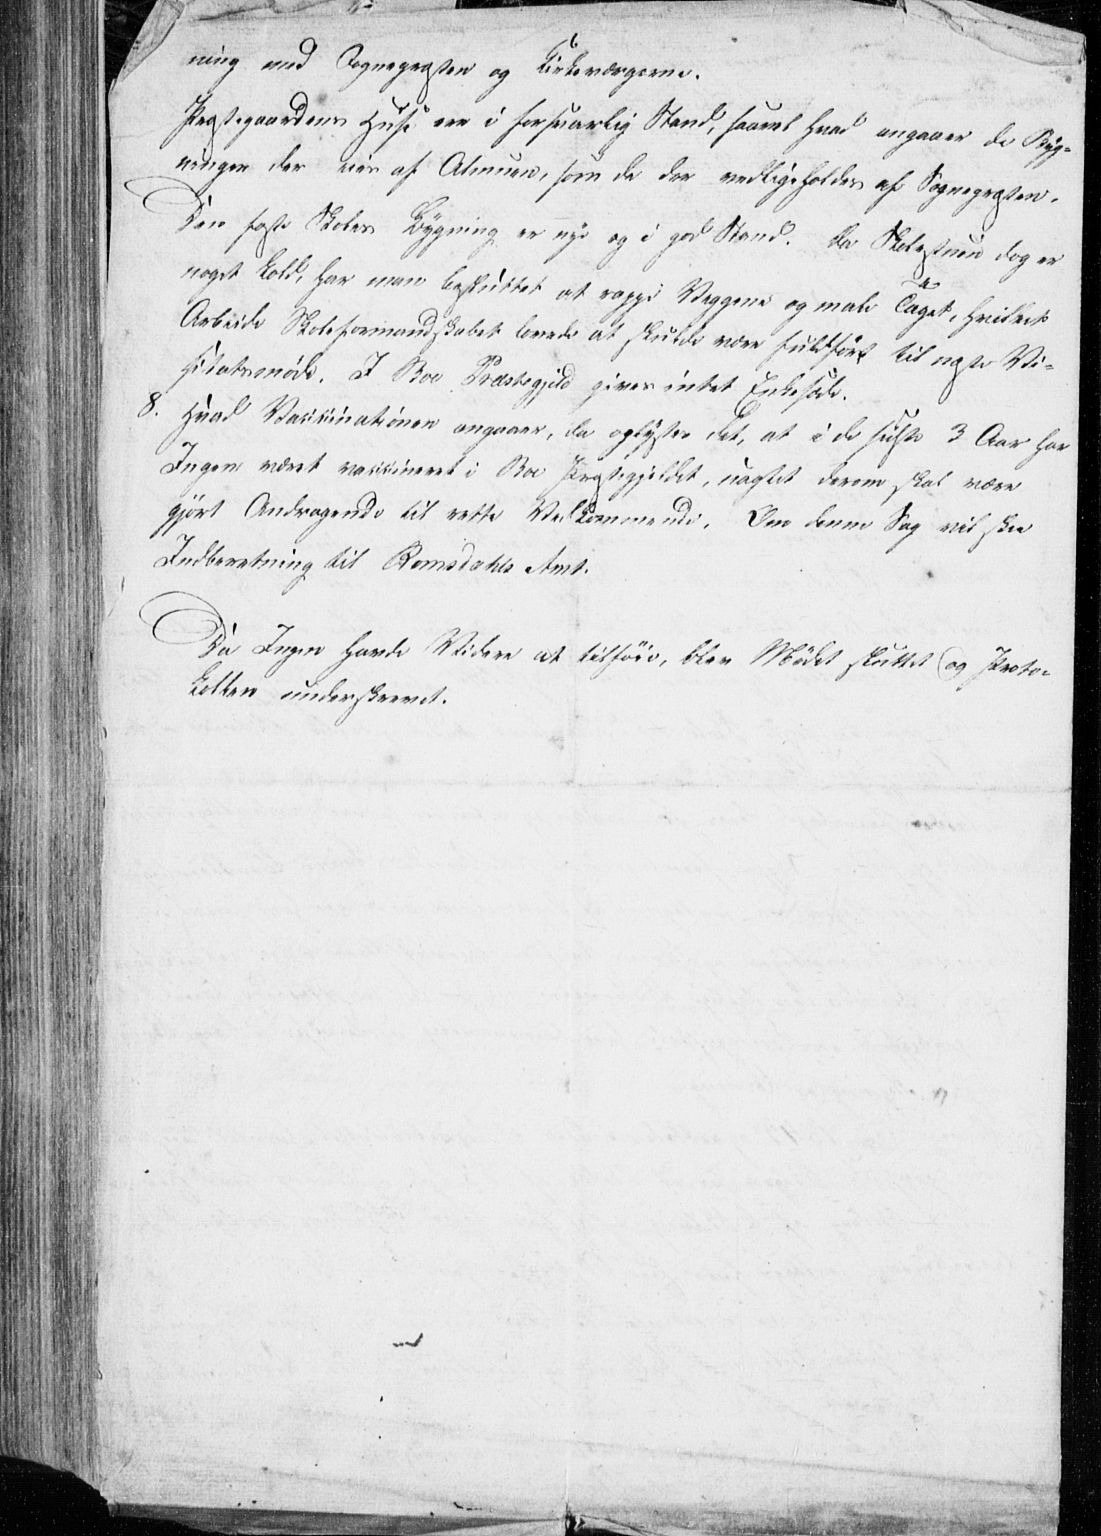 ning med Sognepræsten og Kirkeværgerne.
Præstegaardens Huse ere i forsvarlig Stand, saavel hvad angaaer de Byg-
ninger der eies af Almuen, som de der vedligeholdes af Sognepræsten.
Den faste Skoles Bygning er nye og i god Stand. Da Skolestuen dog er
noget kold, har man besluttet at rappe Væggene og male Taget, hvilket
Arbeide Skoleformandskabet lovede at skulde være fuldført til næste Vi-
sitatsmøde. I Boe Præstegjeld gives intet Enkesæde.
8. Hvad Vaccinationen angaaer, da oplystes det, at i de sidste 3 Aar har
Ingen været vaccineret i Boe Præstegjeldet, uagtet derom skal være
gjørt Andragende til rette Vedkommende. Om denne Sag vil skee
Indberetning til Romsdahls Amt.
Da Ingen havde Videre at tilføie, blev Mødet sluttet og Proto-
kollen underskrevet.